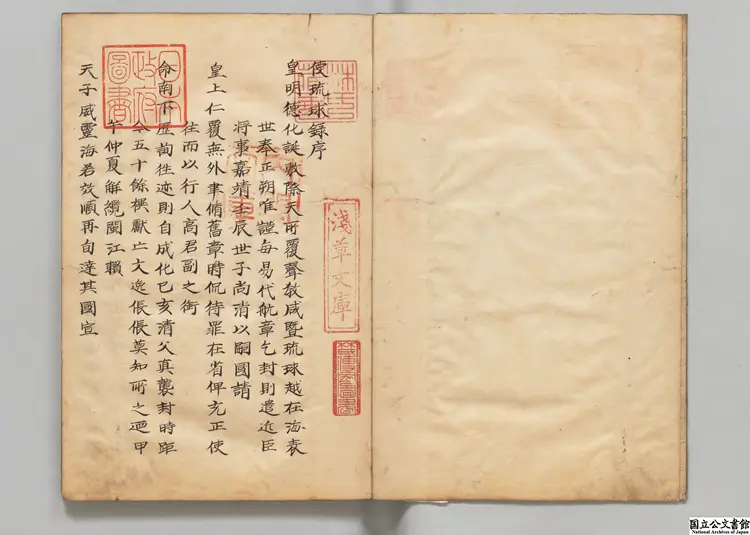 使琉球錄序
皇明德化誕敷際天所覆聲教咸暨琉球越在海表
世奉正朔唯謹每易代航章乞封則遣近臣
將事嘉靖壬辰世子尚清以嗣國請
皇上仁覆無外聿脩舊章時侃待罪在省俾充正使
往而以行人高君副之銜
命南下歷詢往迹則自成化己亥清父真襲封時距
今五十餘禩獻亡文逸倀倀莫知所之迺甲
午仲夏解纜閩江賴
天子威靈海若效順再旬達其國宣
淺草文庫
日本政府圖書
国立公文書館
National Archives of Japan